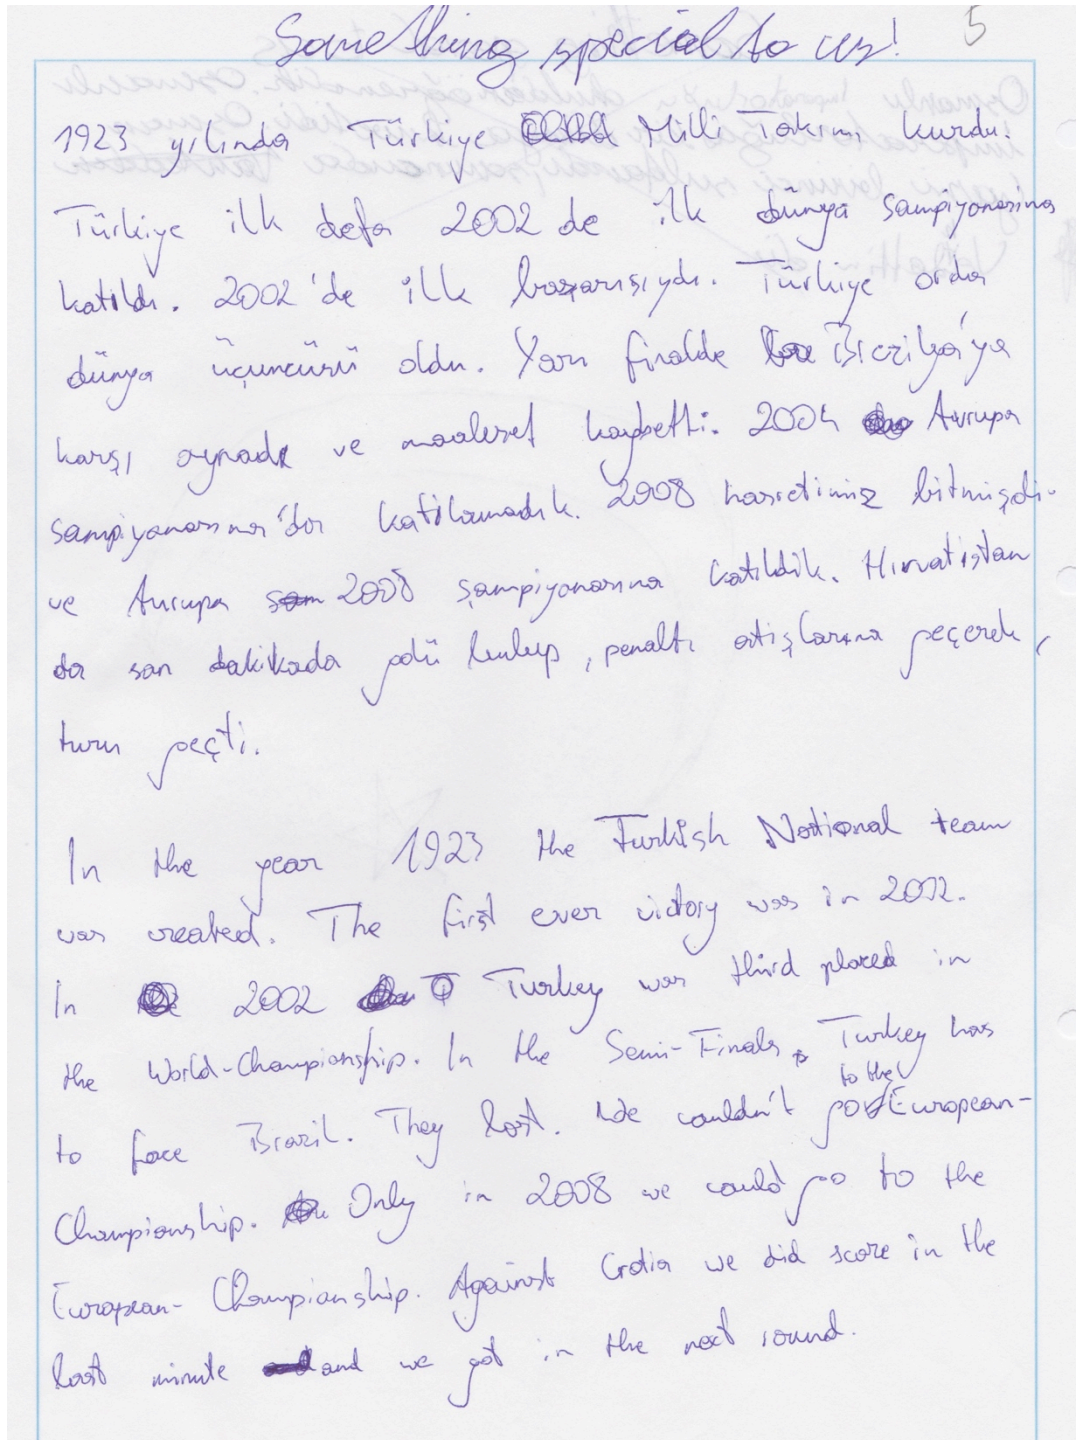 Something special to us! 5
1923 yılında Türkiye Milli Takımı kurdu.
Türkiye ilk defa 2002 de ilk dünya şampiyonasına
katıldı. 2002'de ilk başarısıydı. Türkiye orda
dünya üçüncüsü oldu. Yarı finalde Brezilya'ya
karşı oynadı ve maalesef kaybetti. 2004 Avrupa
sampiyonasına'da katılamadık. 2008 hasretimiz bitmişdi
ve Avrupa 2008 şampiyonasına katıldık. Hırvatistan
da son dakikada golü bulup, penaltı atışlarına geçerek,
turu geçti.
In the year 1923 the Turkish National team
was created. The first ever victory was in 2002.
In 2002 Turkey was third placed in
the World-Championship. In the Semi-Finals, Turkey has
to face Brazil. They lost. We couldn't go to the European-
Championship. Only in 2008 we could go to the
European- Championship. Against Crotia we did score in the
last minute and we got in the next round.